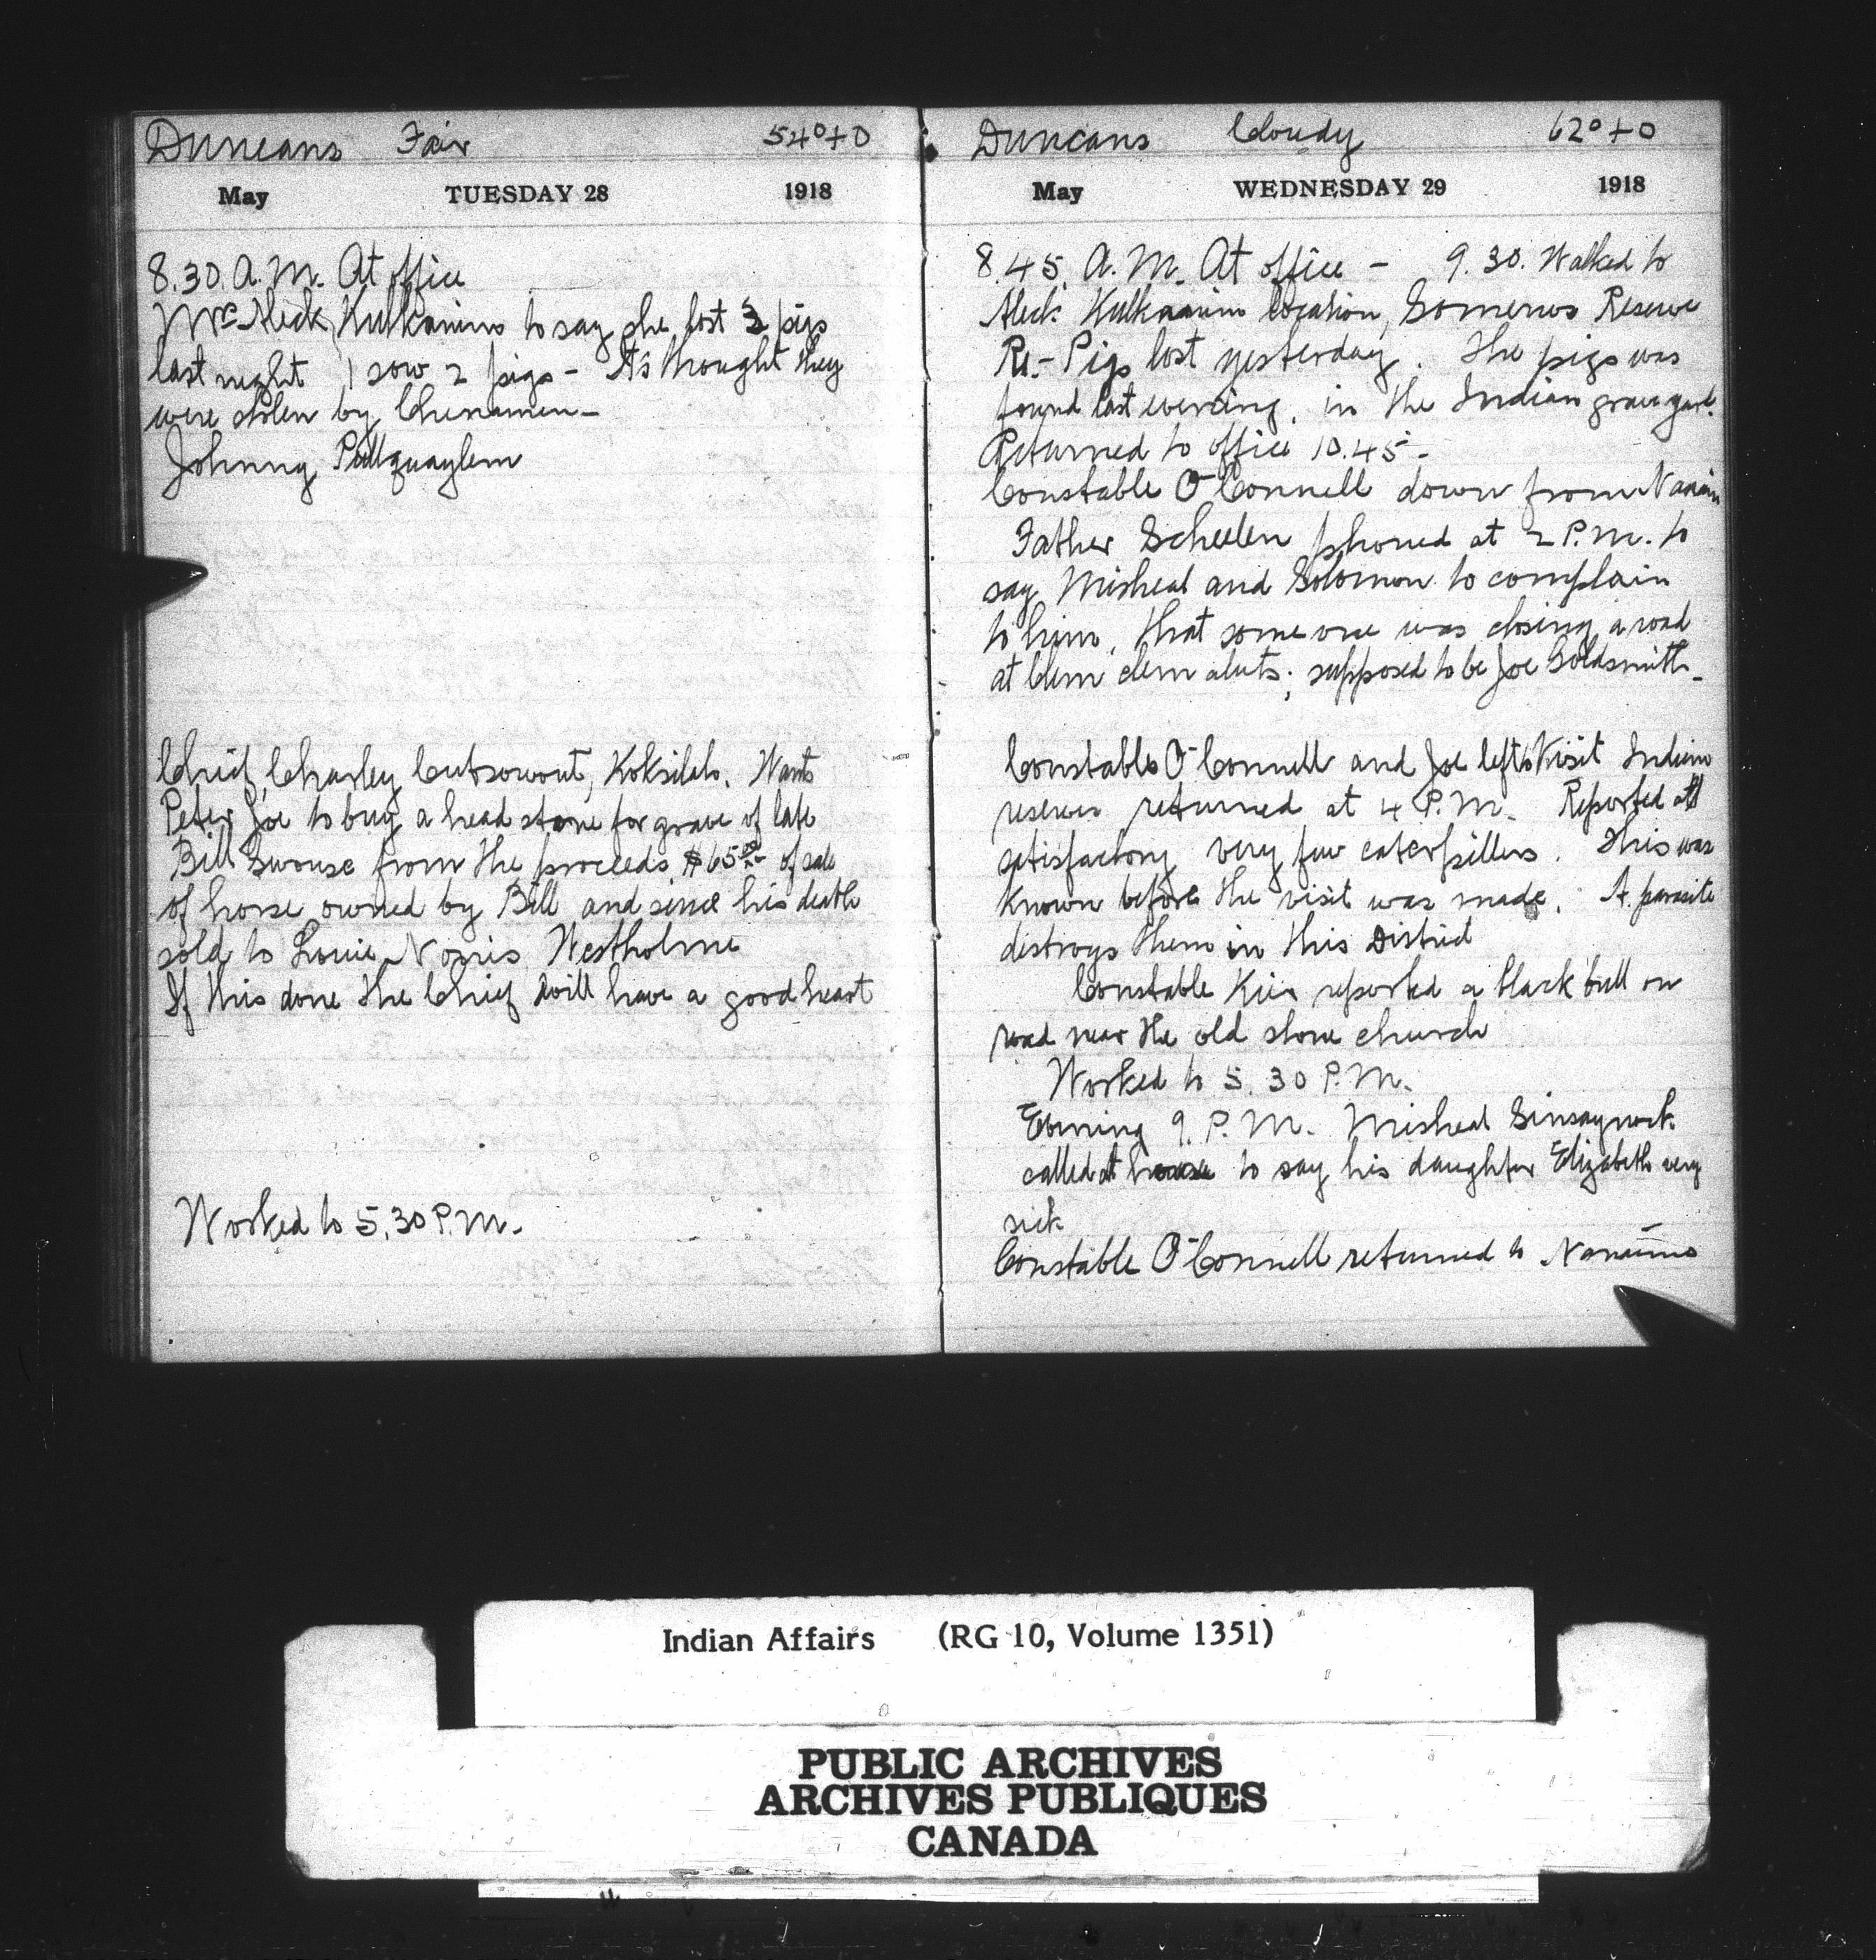 Duncans Fair 54°+0
May TUESDAY 28 1918
8.30. A.M. At office
Mrs Aleck Kulkanims to say she lost 3 pigs
last night 1 sow 2 pigs - Its thought they
were stolen by Chinamen -
Johnny Pallquaylem
Chief, Charley Cutsowout, Koksilah. Wants
Peter Joe to buy a head stone for grave of late
Bill Swouse from the proceeds $65.00 of sale
of horse owned by Bill and since his death
sold to Louie Norris Westholme
If this done the Chief will have a good heart
Worked to 5.30 P.M.
Duncans Cloudy 62°+0
May WEDNESDAY 29 1918
8.45. A.M. At office - 9.30. Walked to
Aleck Kulkanim location, Somenos Reserve
Re- Pigs lost yesterday. The pigs was
found last evening. in the Indian grave yard.
Returned to office 10.45 -
Constable O'Connell down from Nanaim
Father Scheelen phoned at 2 P.M. to
say Misheal and Solomon to complain
to him, that some one was closing a road
at Clem clem aluts; supposed to be Joe Goldsmith -
Constable O'Connell and Joe left to Visit Indian
reserves returned at 4 P.M. Reported all
satisfactory very few caterpillers. This was
known before the visit was made. A parasite
distroys them in this District
Constable Kier reported a black bull on
road near the old stone church
Worked to 5.30 P.M.
Evening 9. P.M. Misheal
called at house to say his daughter Elizabeth very
sick
Constable O'Connell returned to Nanaimo
Indian Affairs (RG 10, Volume 1351)
PUBLIC ARCHIVES
ARCHIVES PUBLIQUES
CANADA